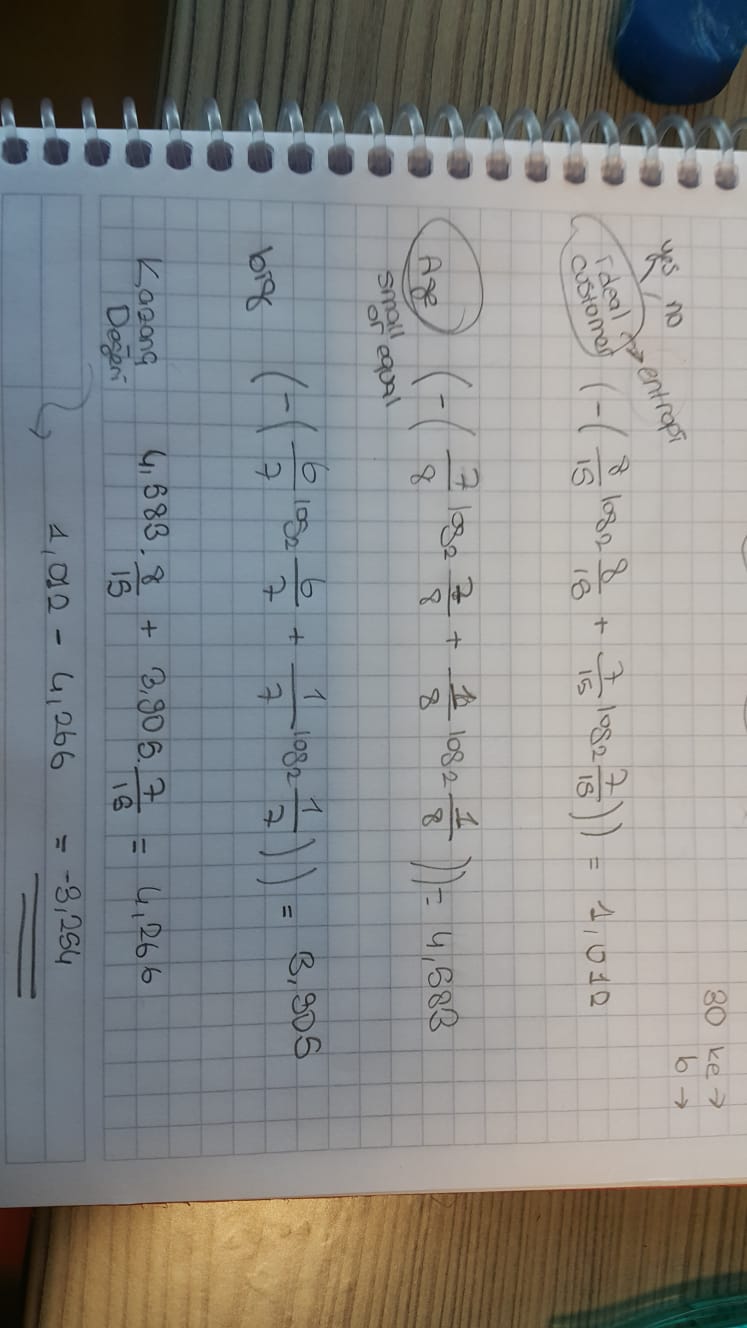 30 ke →
b →
yes no
ideal customer → entropi (-( 8/15 log2 8/15 + 7/15 log2 7/15 )) = 1,012
Age (-( 7/8 log2 7/8 + 1/8 log2 1/8 )) = 4,583
small or equal
big (-( 6/7 log2 6/7 + 1/7 log2 1/7 )) = 3,905
Kazanç Değeri 4,583 . 8/15 + 3,905 . 7/15 = 4,266
1,012 - 4,266 = -3,254